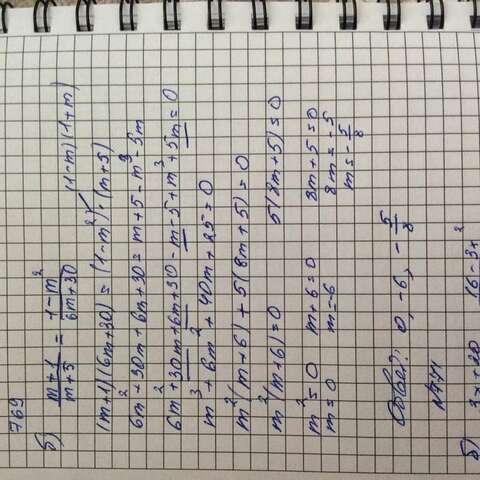 769
б) (m+1)/(m+5) = (1-m²)/(6m+30)
(1-m)(1+m)
(m+1)(6m+30) = (1-m²)·(m+5)
6m²+30m+6m+30 = m+5-m³-5m
6m²+30m+6m+30-m-5+m³+5m=0
m³+6m²+40m+25=0
m²(m+6)+5(8m+5)=0
m²(m+6)=0 5(8m+5)=0
m²=0 m+6=0 8m+5=0
m=0 m=-6 8m=-5
m=-5/8
Ответ: 0, -6, -5/8